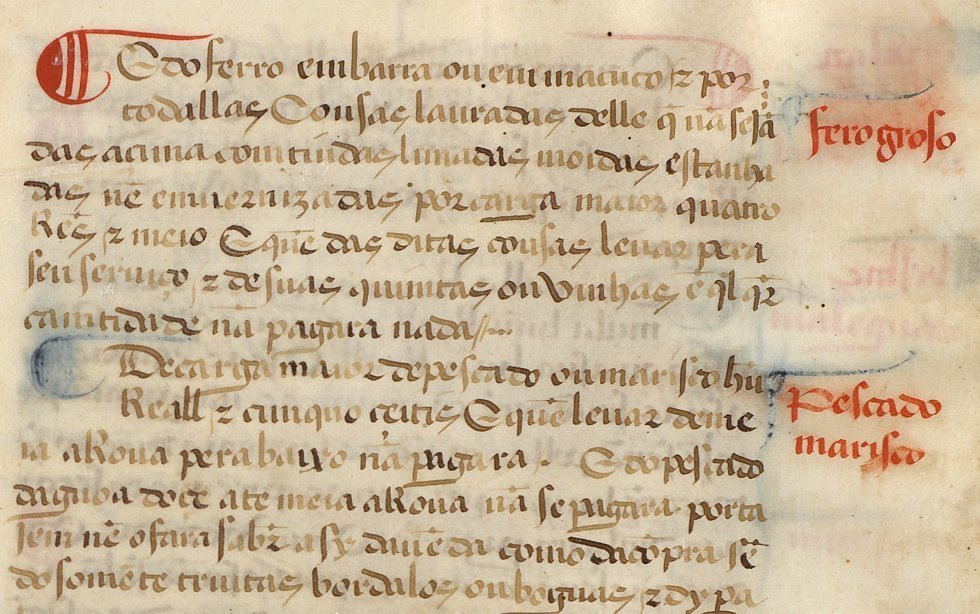 E do ferro em barra ou em maçuco ⁊ por
todallas Cousas lauradas delle q̃ nã sejã
das açima contiudas limadas moidas estanha
das nẽ emuernizadas por carga maior quatro
Reẽs ⁊ meio E quẽ das ditas cousas leuar pera
seu seruiço ⁊ de suas quintas ou vinhas e q̃l q̃r
cantidade nã pagara nada
fero groso
De carga maior de pescado ou marisco hũ
Reall ⁊ cinquo ceitis E quẽ leuar de me
ia aRoua pera baixo nã pagara. E do pescado
daguoa doce ate meia aRoua nã se pagara porta
Jem nẽ o fara sabr̃ asy da uẽda como da cõpra sẽ
do somẽte truitas bordalos ou boguas ⁊ dy pa
Pescado
marisco